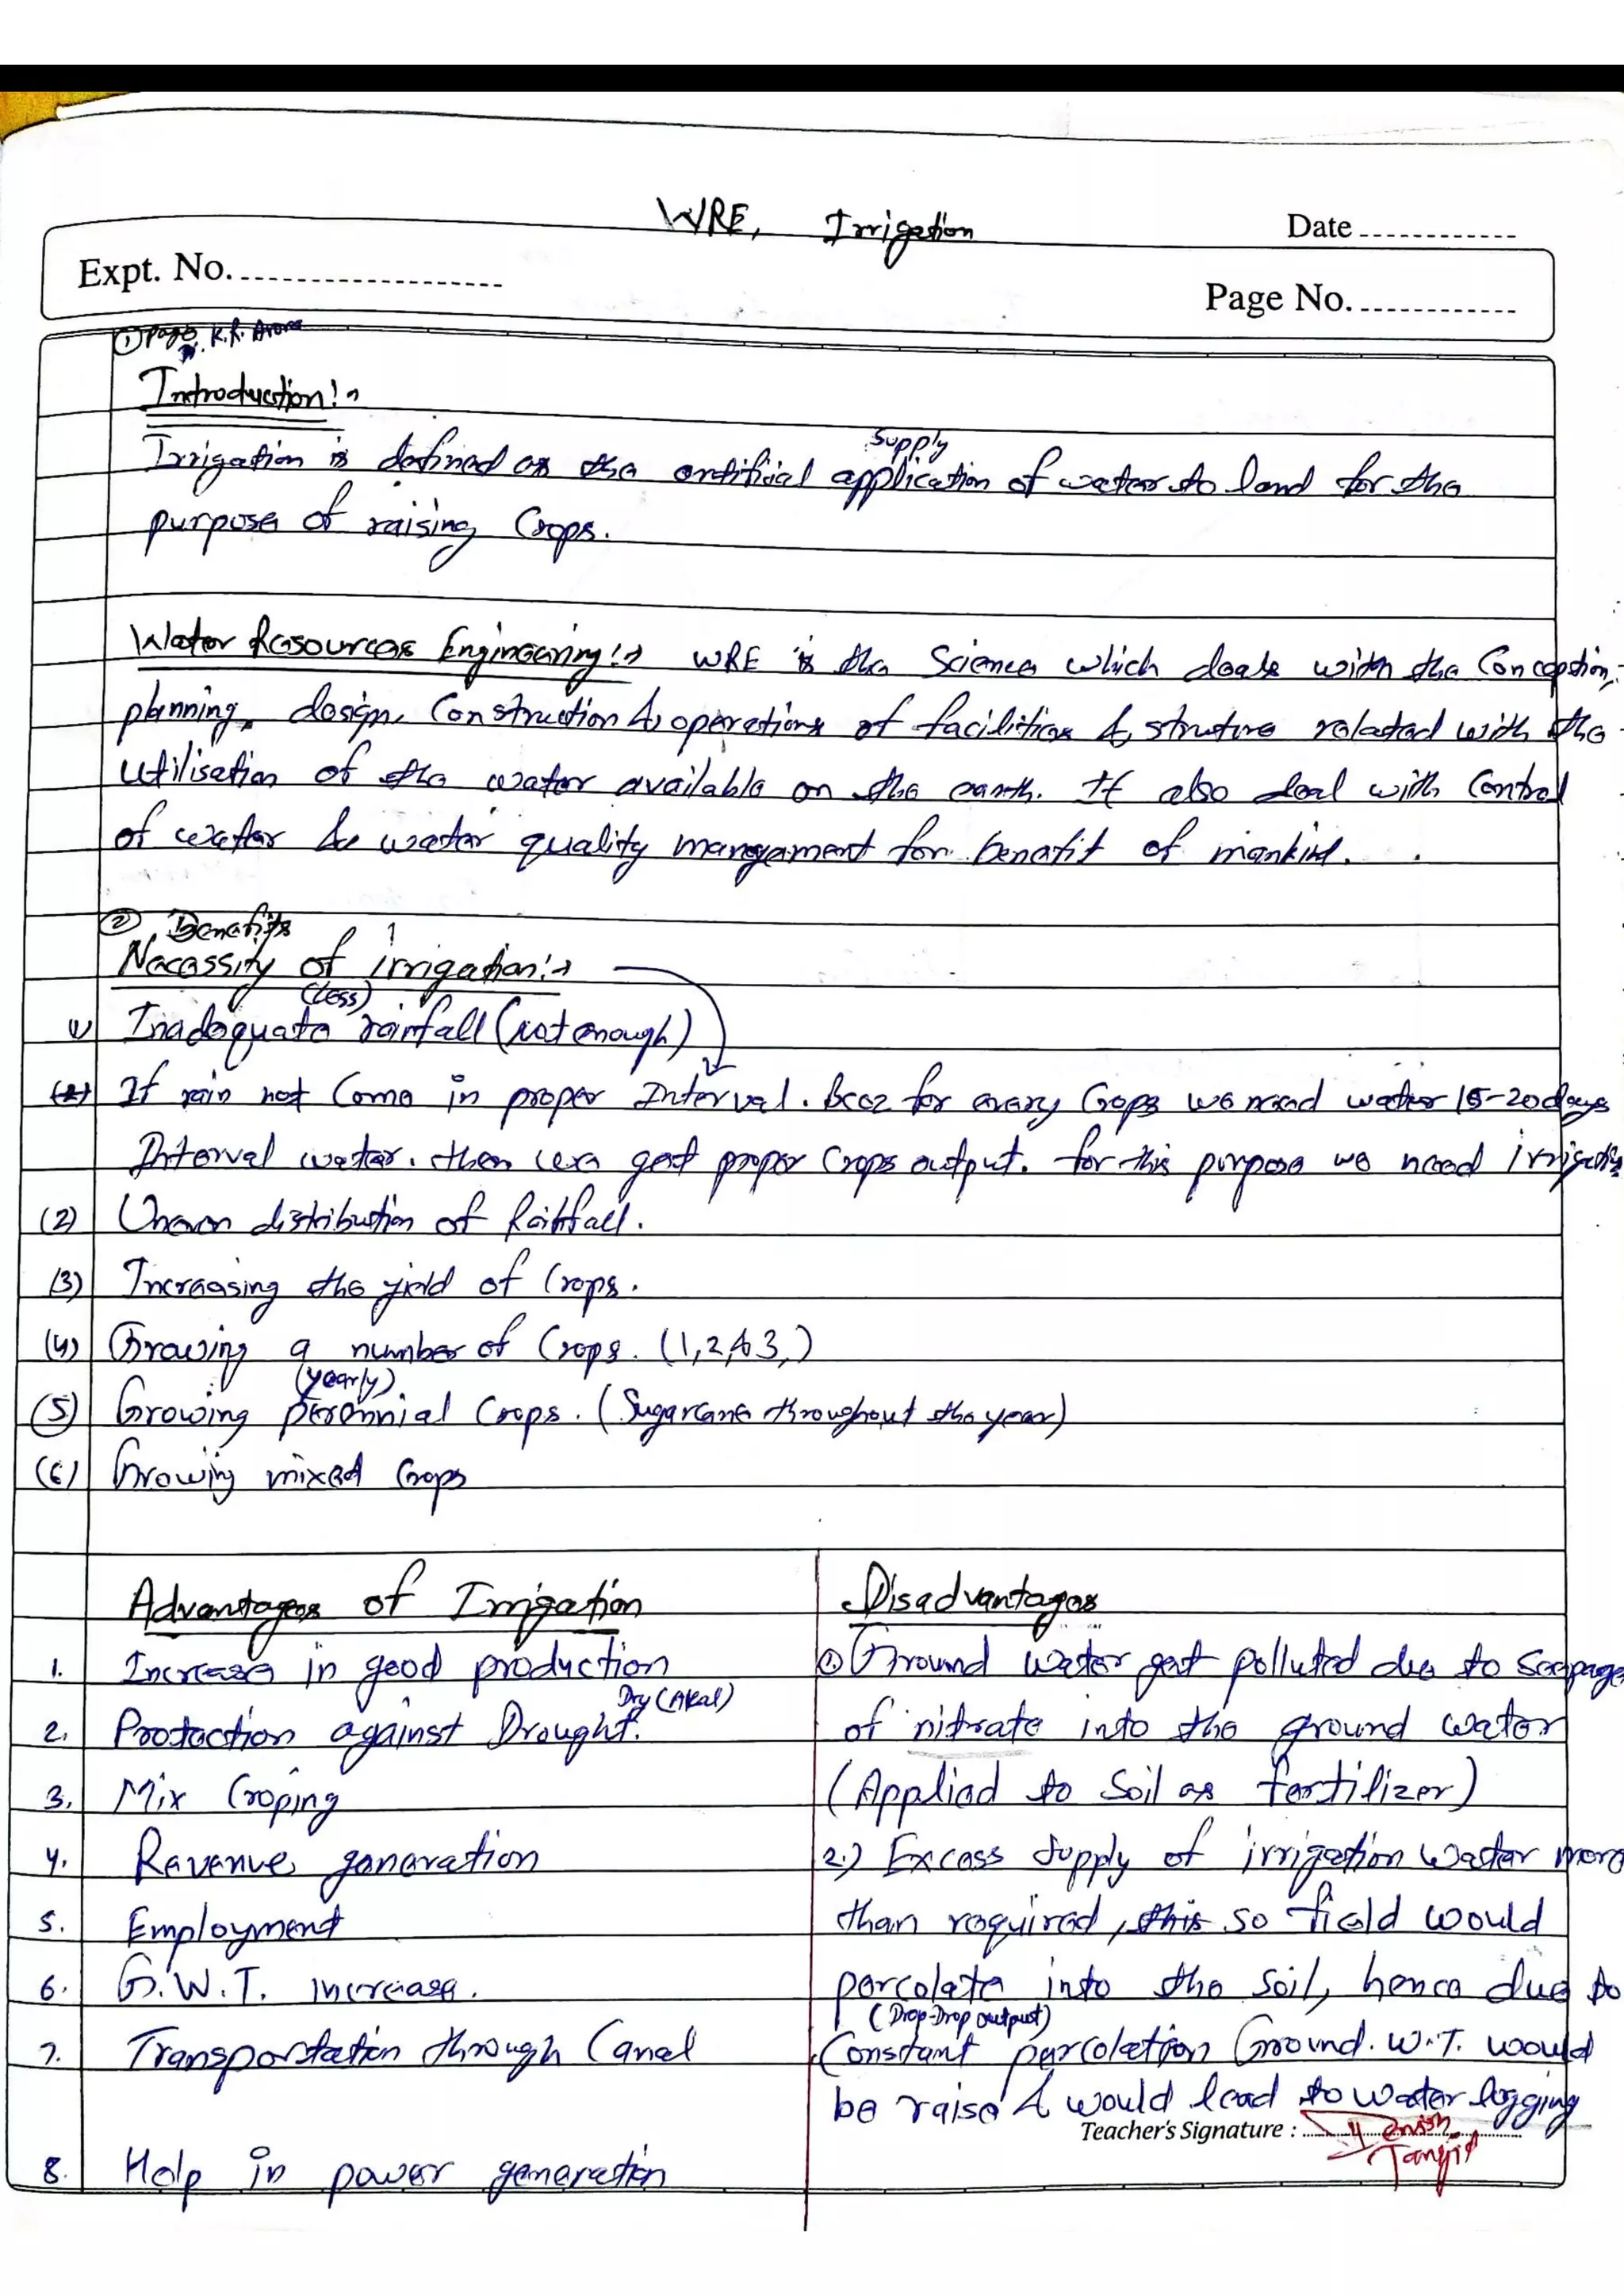 WRE, Irrigation
Date
Expt. No.
Page No.
① Page K.R. Arora
Introduction:→
Supply
Irrigation is defined as the artificial application of water to land for the
purpose of raising Crops.
Water Resources Engineering:→ WRE is the Science which deals with the Conception,
planning, design, Construction & operations of facilities & struture related with the
utilisation of the water available on the earth. It also deal with Control
of water & water quality mangament for benefit of mankind.
② Benefits
Necessity of irrigation:→
(Less)
(1) Inadequate rainfall (not enough)
(2) If rain not Come in proper Interval. Bcoz for every Crops we need water 15-20 days
Interval water. then we get proper Crops output. for this purpose we need irrigation
(2) Uneven distribution of Rainfall.
(3) Increasing the yield of Crops.
(4) Growing a number of Crops. (1,2,&3,)
(yearly)
(5) Growing perennial Crops. (Sugarcane throughout the year)
(6) Growing mixed Crops
Advantages of Irrigation
Disadvantages
1. Increase in good production
Dry (Akal)
2. Protection against Drought.
3. Mix Croping
4. Revenue generation
5. Employment
6. G.W.T. increase.
7. Transportation through Canal
8. Help in power generation
① Ground water get polluted due to seepage
of nitrate into the ground water
(Applied to Soil as fertilizer)
2.) Excess supply of irrigation water more
than required, this so field would
percolate into the soil, hence due to
(Drop-Drop output)
Constant percolation Ground. W.T. would
be raise & would lead to water logging
Teacher's Signature :
Tangit